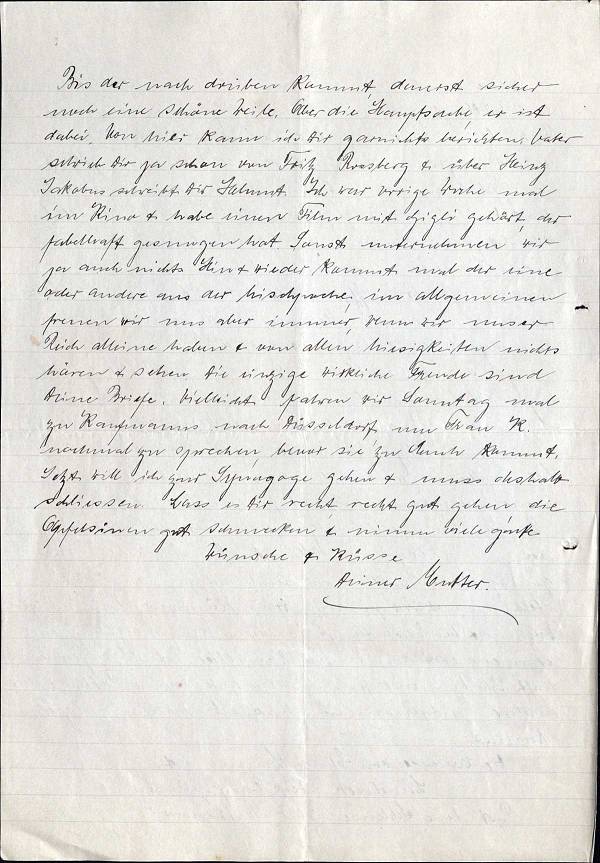 Bis der nach drüben kommt, dauert sicher
noch eine schöne Weile. Aber die Hauptsache er ist
dabei. Von hier kann ich Dir garnichts berichten. Vater
schrieb Dir ja schon von Fritz Rosberg & über Heinz
Jakobus schreibt Dir Helmut. Ich war vorige Woche mal
im Kino & habe einen Film mit Gigli gehört, der
fabelhaft gesungen hat. Sonst unternehmen wir
ja auch nichts. Hin & wieder kommt mal der eine
oder andere aus der Mischpoche, im allgemeinen
freuen wir uns aber immer, wenn wir unser
Reich alleine haben & von allen hiesigkeiten nichts
hören & sehen. Die einzige wirkliche Freude sind
Deine Briefe. Vielleicht fahren wir Sonntag mal
zu Kaufmanns nach Düsseldorf, um Frau K.
nochmal zu sprechen, bevor sie zu Euch kommt.
Jetzt will ich zur Synagoge gehen & muss deshalb
schliessen. Lass es Dir recht recht gut gehen die
Apfelsinen gut schmecken & nimm viele gute
Wünsche & Küsse
Deiner Mutter.